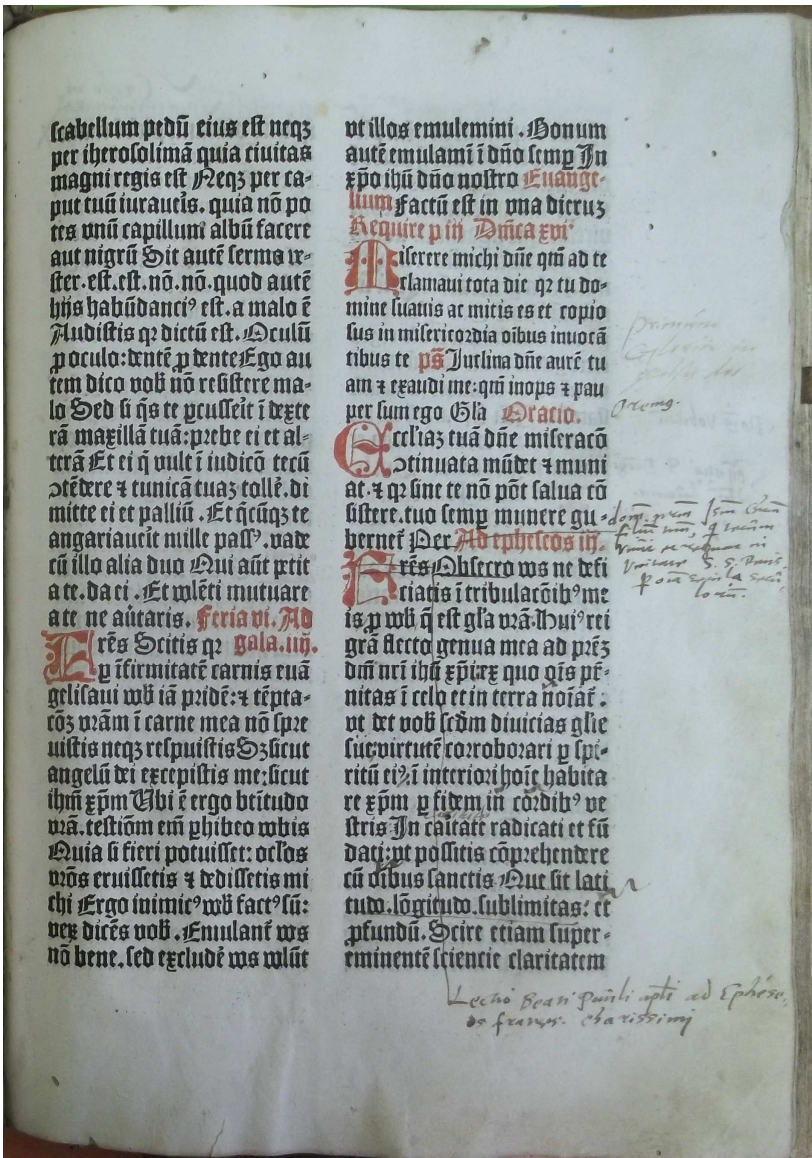 scabellum pedū eius est neqꝫ
per iherosolimā quia ciuitas
magni regis est Neqꝫ per ca-
put tuū iuraueīs. quia nō po
tes vnū capillum albū facere
aut nigrū Sit autē sermo ve-
ster. est. est. nō. nō. quod autē
hijs habūdanciꝰ est. a malo ē
Audistis qꝛ dictū est. Oculū
ꝓ oculo: dentē ꝓ dente Ego au
tem dico vob̄ nō resistere ma-
lo Sed si q̄s te ꝑcusseīt ī dexte
rā maxillā tuā: prebe ei et al-
terā Et ei q̄ vult ī iudicō tecū
ↄtēdere ⁊ tunicā tuaꝫ tolle᷑. di
mitte ei et palliū. Et q̄cūqꝫ te
angariaueīt mille passꝰ. vade
cū illo alia duo Qui aūt petit
a te. da ei. Et volēti mutuare
a te ne aūtaris. Feria vi. Ad
Frēs Scitis qꝛ gala. iiij.
ꝑ īfirmitatē carnis euā
gelisaui vob̄ iā pridē: ⁊ tēpta-
cōꝫ vrām ī carne mea nō spre
uistis neqꝫ respuistis Sꝫ sicut
angelū dei excepistis me: sicut
ihm̄ xp̄m Ubi ē ergo btītudo
vrā. testiōm em̄ ꝑhibeo vobis
Quia si fieri potuisset: oclos
vrōs eruissetis ⁊ dedissetis mi
chi Ergo inimicꝰ vob̄ factꝰ sū:
veꝝ dicēs vob̄. Emulant᷑ vos
nō bene. sed excludē vos volūt
vt illos emulemini. Bonum
autē emulamī ī dn̄o semꝑ In
xp̄o ihū dn̄o nostro Euange-
lium Factū est in vna dieruꝫ
Require p iij Dm̄ca xvi
Miserere michi dn̄e qm̄ ad te
clamaui tota die qꝛ tu do-
mine suauis ac mitis es et copio
sus in misericordia oībus inuocā
tibus te ps̄ Inclina dn̄e aurē tu
am ⁊ exaudi me: qm̄ inops ⁊ pau
per sum ego Gl̄a Oratio.
Eccl̄iaꝫ tuā dn̄e miseracō
ↄtinuata mūdet ⁊ muni
at. ⁊ qꝛ sine te nō pōt salua cō
sistere. tuo semꝑ munere gu-
bernet᷑ Per Ad ephesos iij.
Frēs Obsecro vos ne defi
ciatis ī tribulacōibꝰ me
is ꝓ vob̄ q̄ est gl̄a vrā. Huiꝰ rei
grā flecto genua mea ad prēꝫ
dn̄i nri ihū xp̄i: ex quo oīs pr̄-
nitas ī celo et in terra noīat᷑:
vt det vob̄ scd̄m diuicias gl̄ie
sue: virtutē corroborari ꝑ spi-
ritū eiꝰ. ī interiori hoīe habita
re xp̄m ꝑ fidem in cōrdibꝰ ve
stris In caītate radicati et fū
dati: vt possitis cōprehendere
cū oībus sanctis Que sit lati
tudo. lōgitudo. sublimitas: et
ꝓfundū. Scire etiam super-
eminentē sciencie claritatem
Oremꝰ.
Lectio Beati Pauli apl̄i ad Ephesi-
os fratres. charissimi